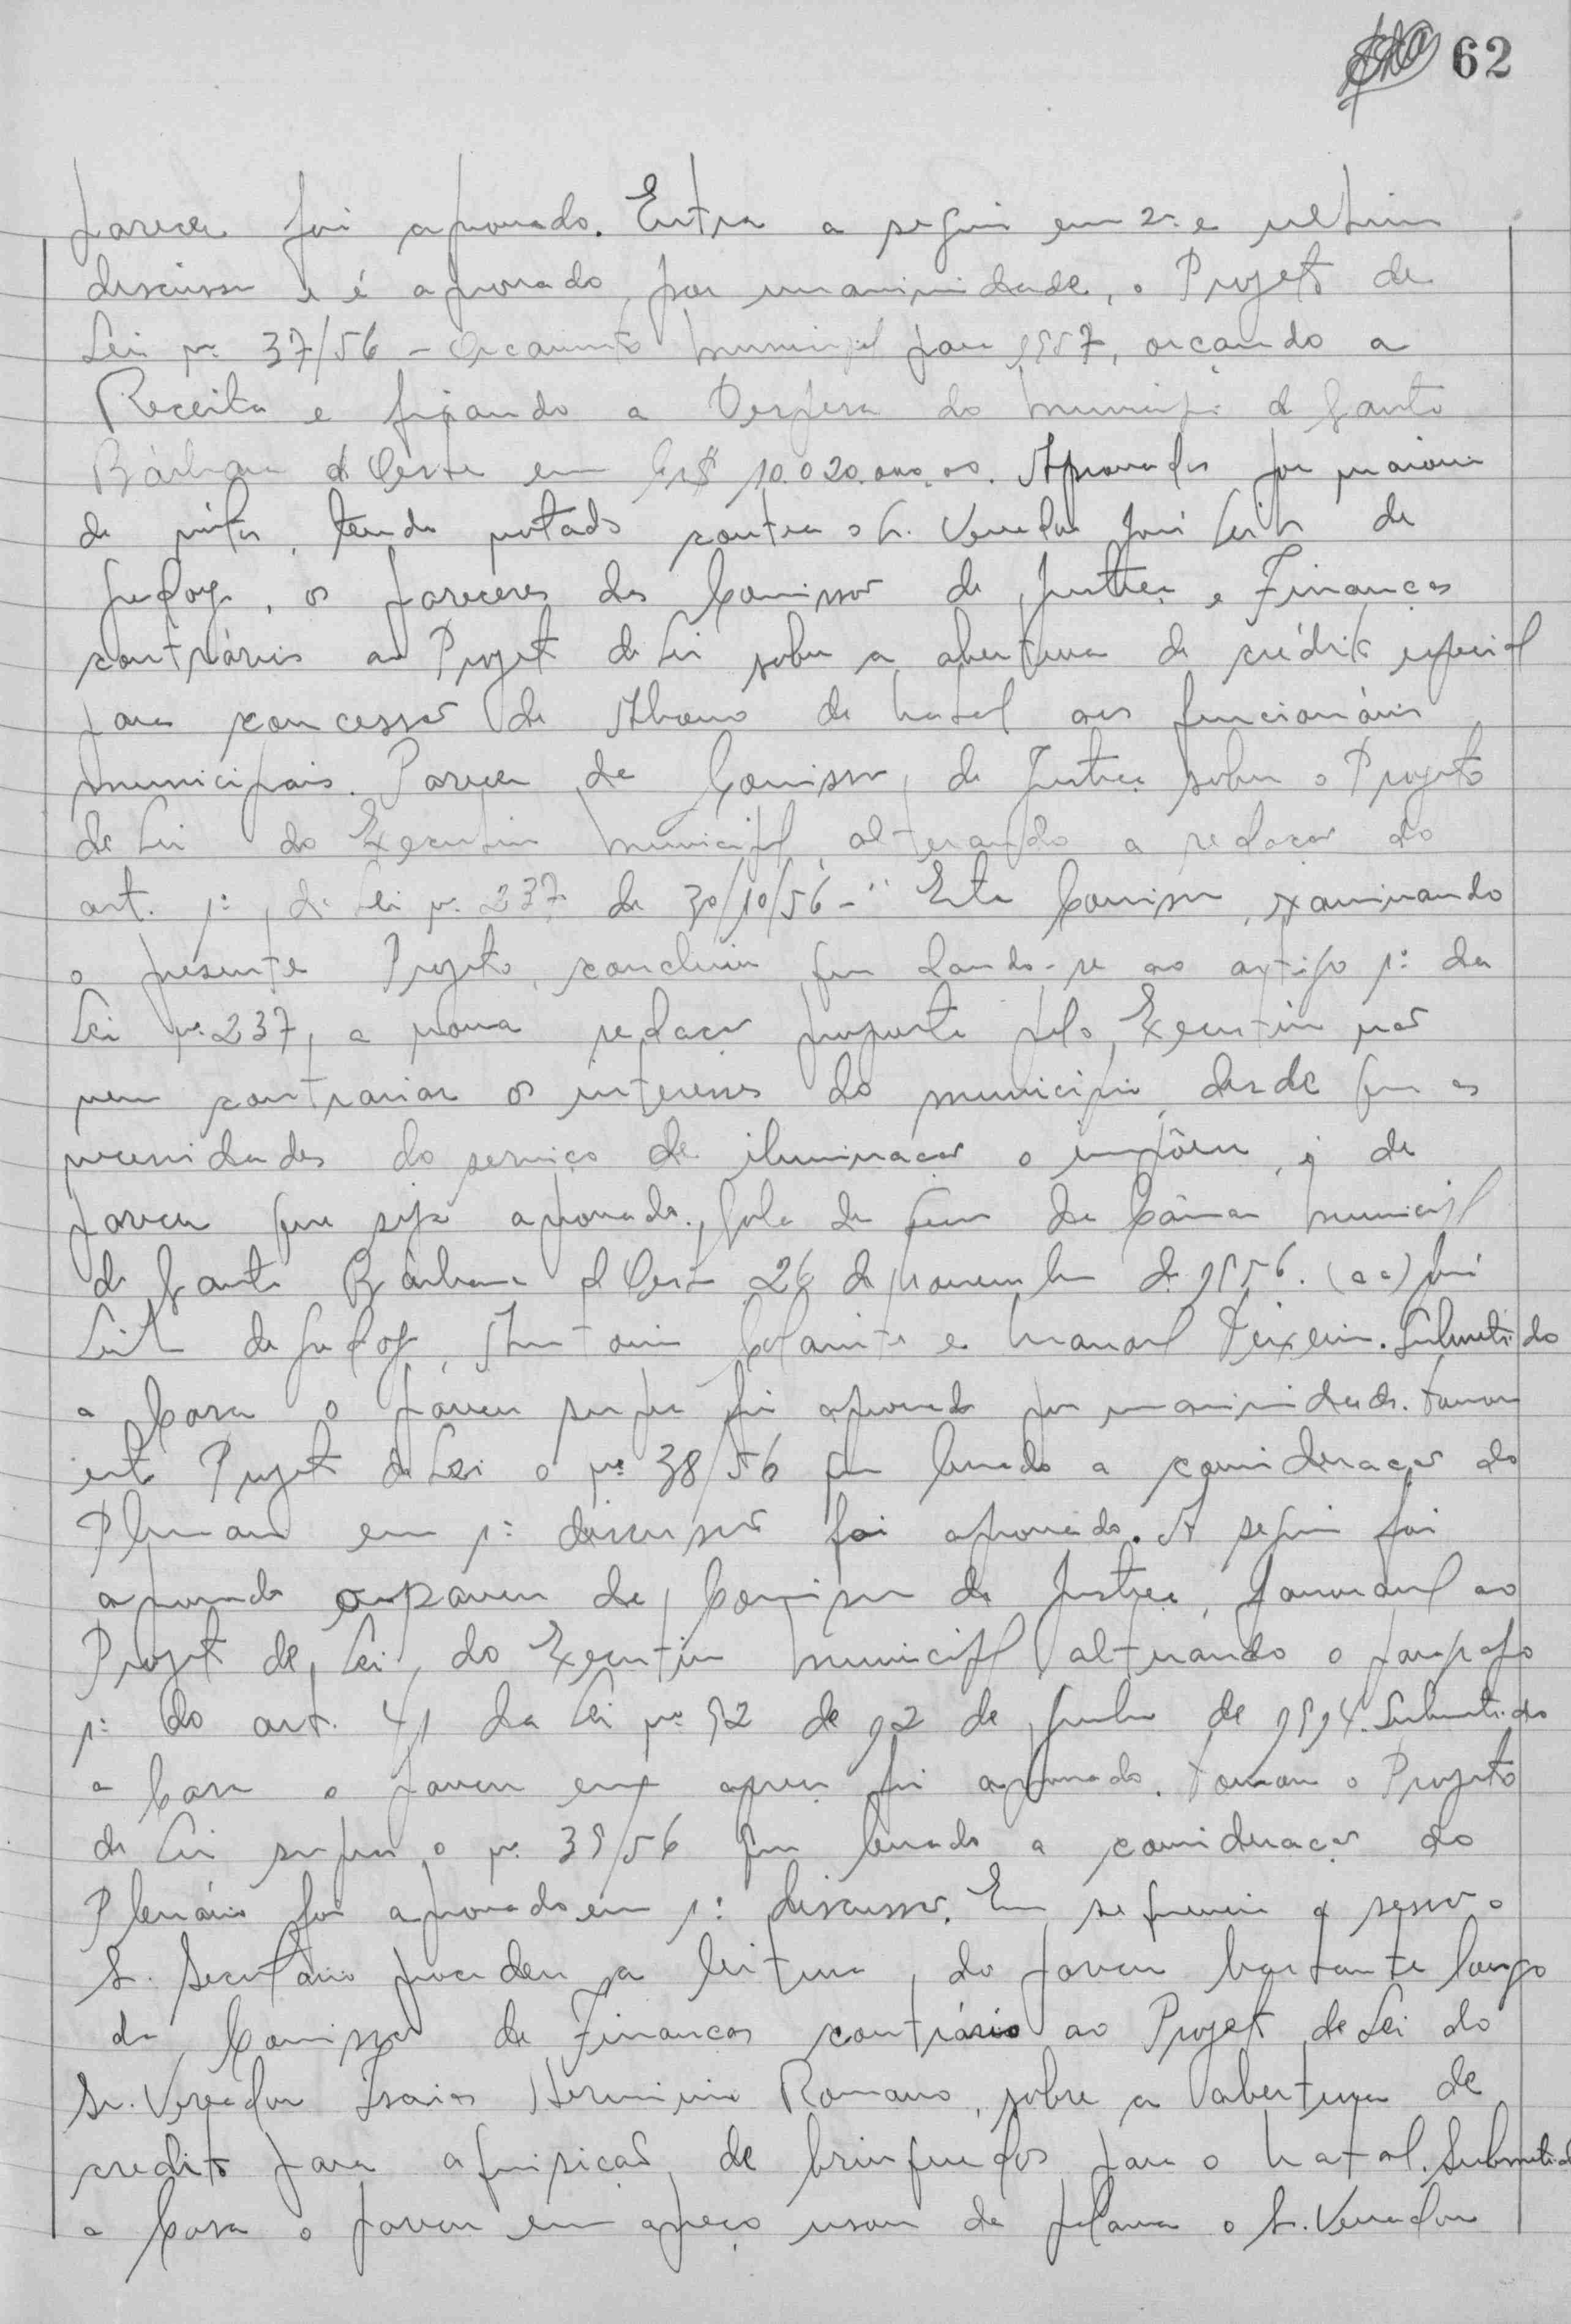 62
parecer foi aprovado. Entra a seguir em 2ª e ultima
discussão e é aprovado, por unanimidade, o Projeto de
Lei nº 37/56 - Orçamento Municipal para 1957, orçando a
Receita e fixando a Despesa do Municipio de Santa
Bárbara d'Oeste em Cr$ 10.020.000,00. Aprovados por maioria
de votos, tendo votado contra o Sr. Vereador José Leite de
Godoy, os pareceres das Comissões de Justiça e Finanças
contrários ao Projeto de Lei sobre a abertura de crédito especial
para concessão de Abono de Natal aos funcionários
municipais. Parecer da Comissão de Justiça sobre o Projeto
de Lei do Executivo Municipal, alterando a redação do
art. 1º da Lei nº 237 de 30/10/56 - "Esta Comissão, examinando
o presente Projeto, concluiu que dando-se ao artigo 1º da
Lei nº 237, a nova redação proposta pelo Executivo não
vem contrariar os interesses do municipio, desde que as
necessidades do serviço de iluminação o impõem, é de
parecer que seja aprovado. Sala da da Câmara Municipal
de Santa Bárbara d'Oeste 26 de novembro de 1956. (aa) José
Leite de Godoy, Antonio e Manoel Teixeira. Submetido
a Casa o parecer supra foi aprovado por unanimidade. Tomou
este Projeto de Lei o nº 38/56 que levado a consideração do
Plenário em 1ª discussão foi aprovado. A seguir foi
aprovado o parecer da Comissão de Justiça, favoravel ao
Projeto de Lei, do Executivo Municipal alterando o paragrafo
1º do art. 41 da Lei nº 92 de 12 de Junho de 1954. Submetido
a Casa o parecer em apreço foi aprovado. Tomou o Projeto
de Lei supra o nº 39/56 que levado a consideração do
Plenário foi aprovado em 1ª discussão. Em sequencia a sessão o
Sr. Secretário procedeu a leitura, do parecer bastante longo
da Comissão de Finanças contrário ao Projeto de Lei do
Sr. Vereador Isaias Herminio Romano, sobre a abertura de
credito para aquisição de brinquedos para o Natal. Submetido
a Casa o parecer em apreço usou da palavra o Sr. Vereador